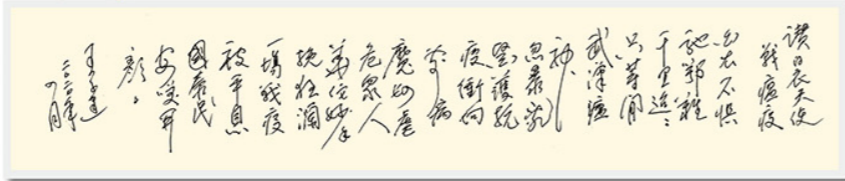 讃白衣天使
战瘟疫
衣不惧
驰鄂
千里迢迢
只等闲
武汉瘟
神
忽暴
医护抗
疫冲向
前病
魔虐
危众人
华佗妙手
挽狂澜
一场战疫
被平息
国泰民
安笑开
颜
王
二〇二〇年
四月